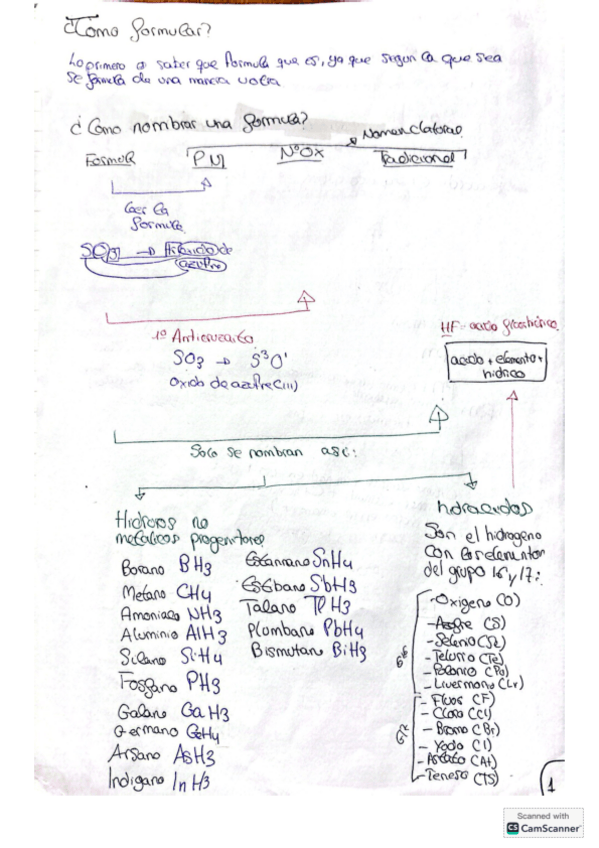 ¿Cómo formular?
Lo primero a saber que formula que es, ya que segun la que sea
se formula de una manera u otra
¿Como nombrar una formula?
Nomenclaturas
Formula PM NºOx Tradicional
Leer la
formula
SO3 → trióxido de
azufre
1º Anticruzarlo
SO3 → S³O¹
Oxido de azufre (III)
HF = acido fluorhídrico
acido + elemento +
hidrico
Solo se nombran asi:
Hidruros no
metalicos progenitores
Borano BH3
Metano CH4
Amoniaco NH3
Aluminio AlH3
Silano SiH4
Fosfano PH3
Galano GaH3
Germano GeH4
Arsano AsH3
Indigano InH3
Estannano SnH4
Estibano SbH3
Talano TlH3
Plumbano PbH4
Bismutano BiH3
hidracidos
Son el hidrogeno
con los elementos
del grupo 16 y 17:
-Oxigeno (O)
-Azufre (S)
-Selenio (Se)
-Telurio (Te)
-Polonio (Po)
-Livermorio (Lr)
-Fluor (F)
-Cloro (Cl)
-Bromo (Br)
-Yodo (I)
-Astato (At)
-Teneso (TS)
G16
G17
1
Scanned with
CS CamScanner